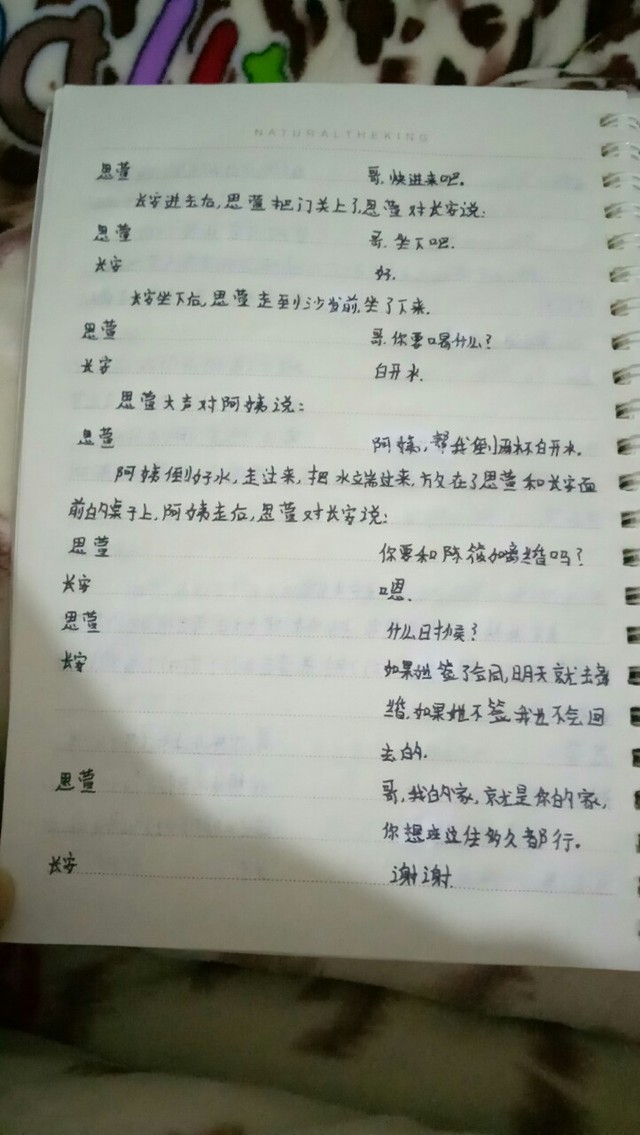 NATURALTHEKING
思萱 哥,快进来吧。
长安进去后,思萱把门关上了,思萱对长安说:
思萱 哥.坐下吧.
长安 好.
长安坐下后,思萱走到沙发前,坐了下来.
思萱 哥.你要喝什么?
长安 白开水.
思萱大声对阿姨说:
思萱 阿姨,帮我倒两杯白开水.
阿姨倒好水,走过来,把水端过来,放在了思萱和长安面
前的桌子上,阿姨走后,思萱对长安说:
思萱 你要和陈筱如离婚吗?
长安 嗯.
思萱 什么时候?
长安 如果她签了合同,明天就去离
婚,如果她不签,我也不会回
去的.
思萱 哥,我的家,就是你的家,
你想在这住多久都行。
长安 谢谢.